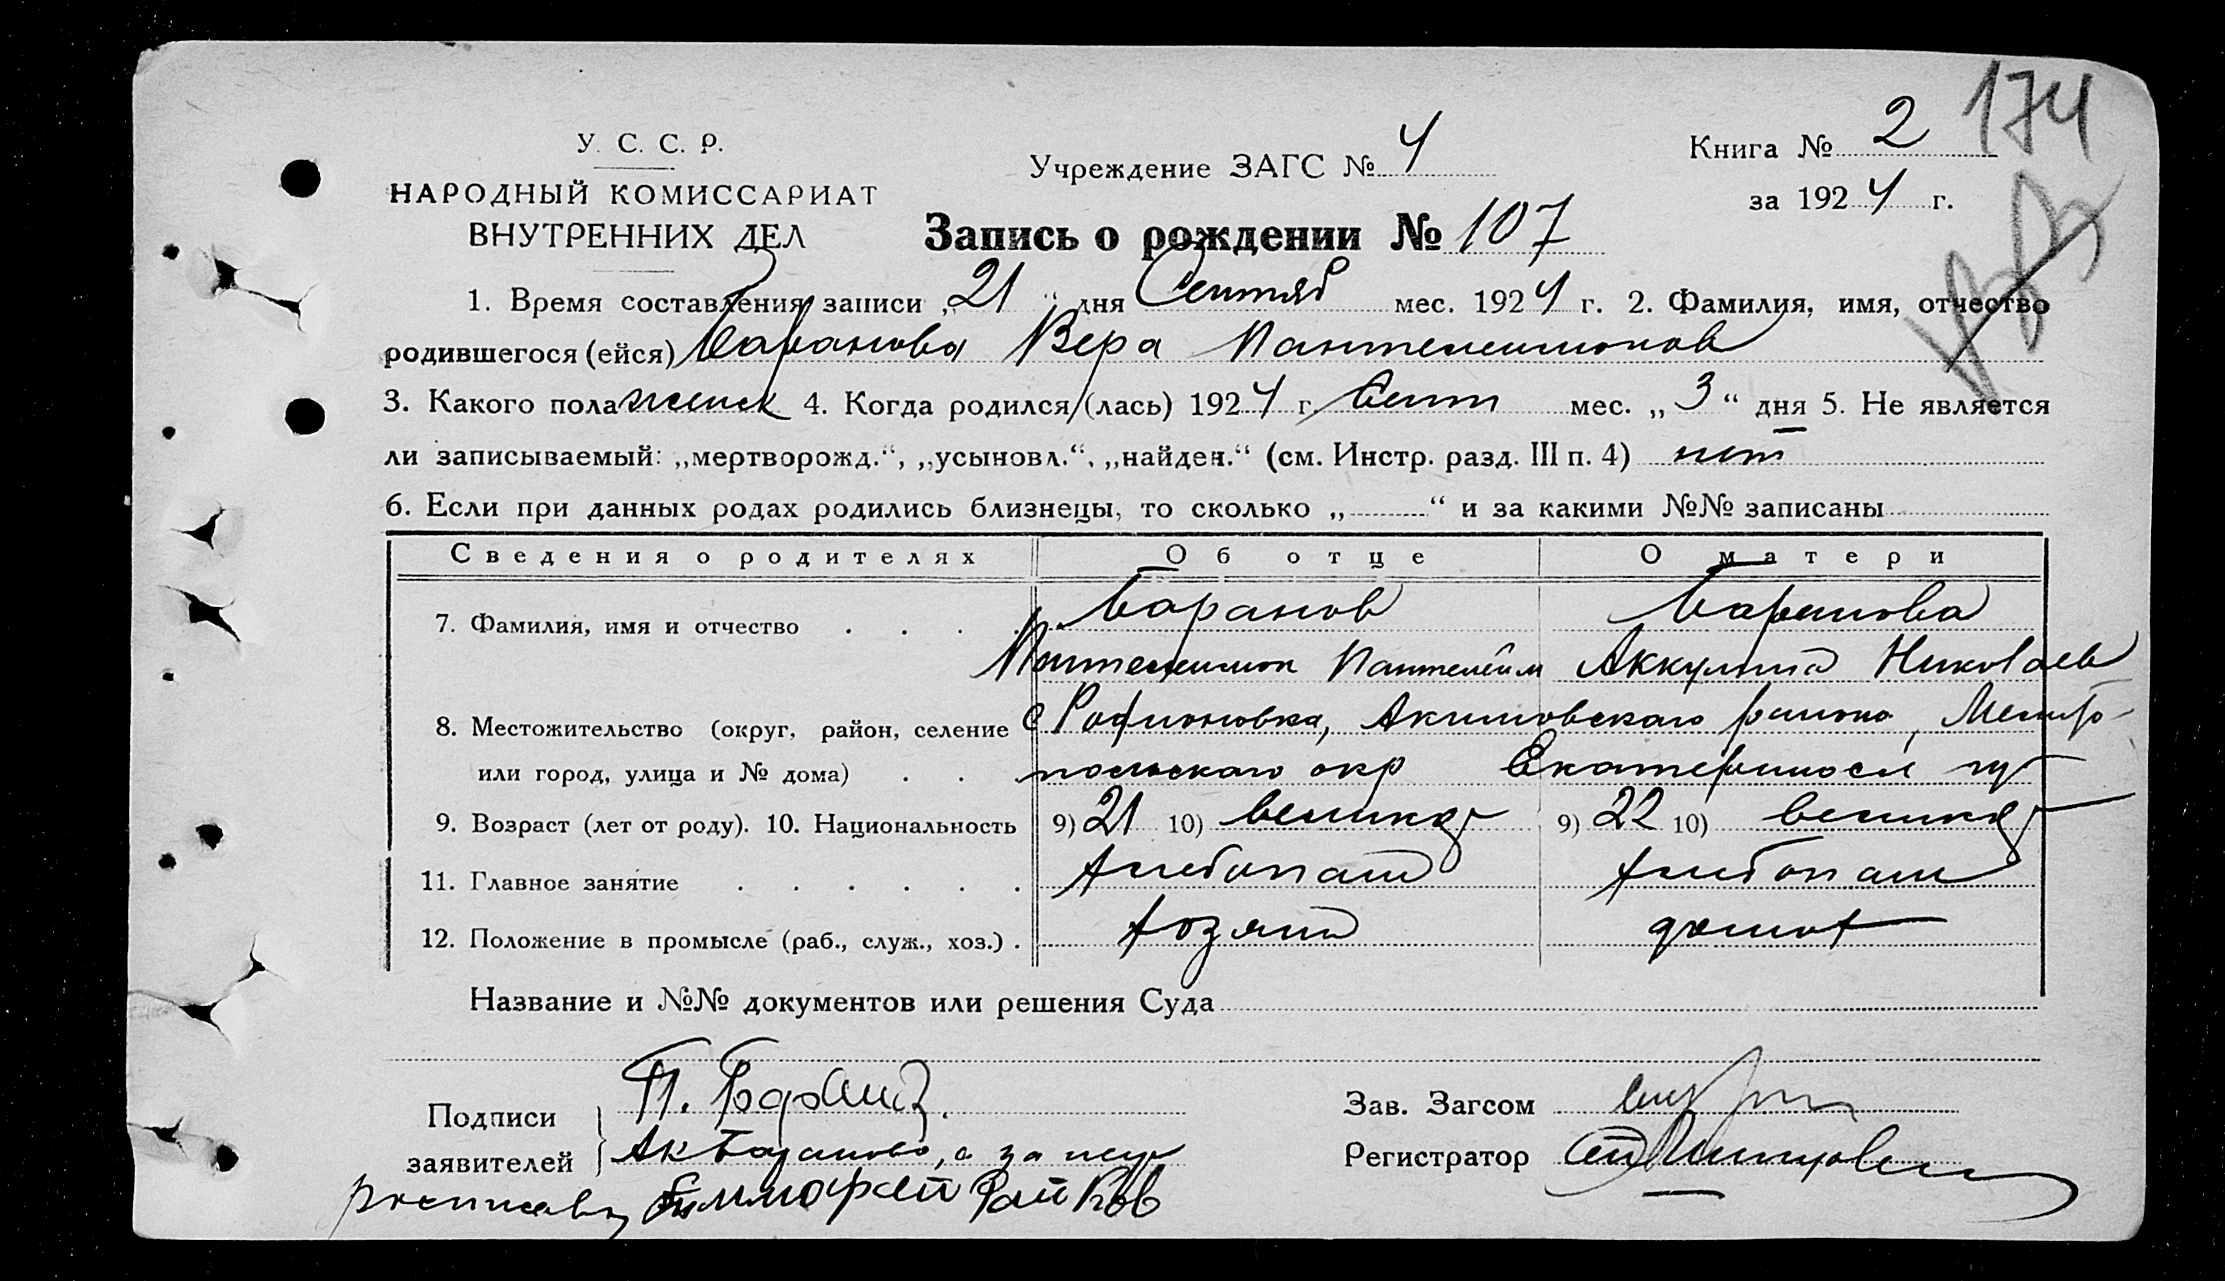 174
У. С. С. Р.
НАРОДНЫЙ КОМИССАРИАТ
ВНУТРЕННИХ ДЕЛ
Учреждение ЗАГС № 4
Книга № 2
за 1924 г.
Запись о рождении № 107
1. Время составления записи „21“ дня Сентяб мес. 1924 г. 2. Фамилия, имя, отчество
родившегося (ейся) Баранова Вера Пантелеимонов
3. Какого пола женск 4. Когда родился/(лась) 1924 г. Сент мес. „3“ дня 5. Не является
ли записываемый: „мертворожд.“, „усыновл.“, „найден.“ (см. Инстр. разд. III п. 4) нет
6. Если при данных родах родились близнецы, то сколько „ “ и за какими №№ записаны
Сведения о родителях Об отце О матери
7. Фамилия, имя и отчество Баранов Баранова
Пантелеимон Пантелейм Аккулина Николаев
8. Местожительство (округ, район, селение с Родионовка, Акимовского района, Мелито-
или город, улица и № дома) польского окр Екатериносл губ
9. Возраст (лет от роду). 10. Национальность 9) 21 10) великор 9) 22 10) великор
11. Главное занятие хлебопаш хлебопаш
12. Положение в промысле (раб., служ., хоз.) хозяин домох
Название и №№ документов или решения Суда
Подписи П. Баранов
заявителей Ак Баранова, а за неуг
Зав. Загсом
Регистратор